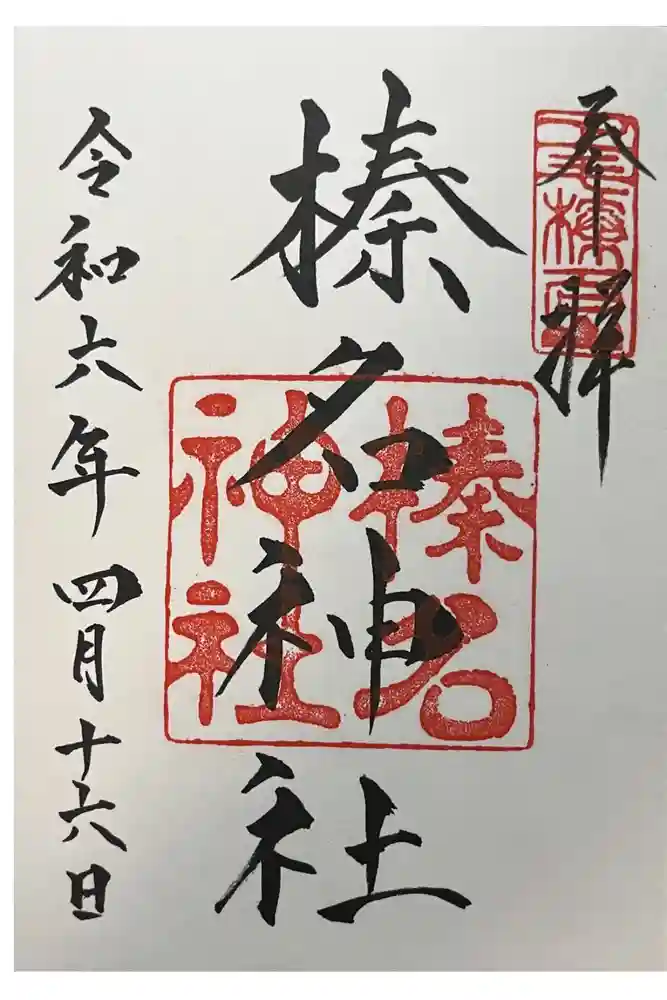 奉拝
榛名神社
榛名
神社
令和六年四月十六日